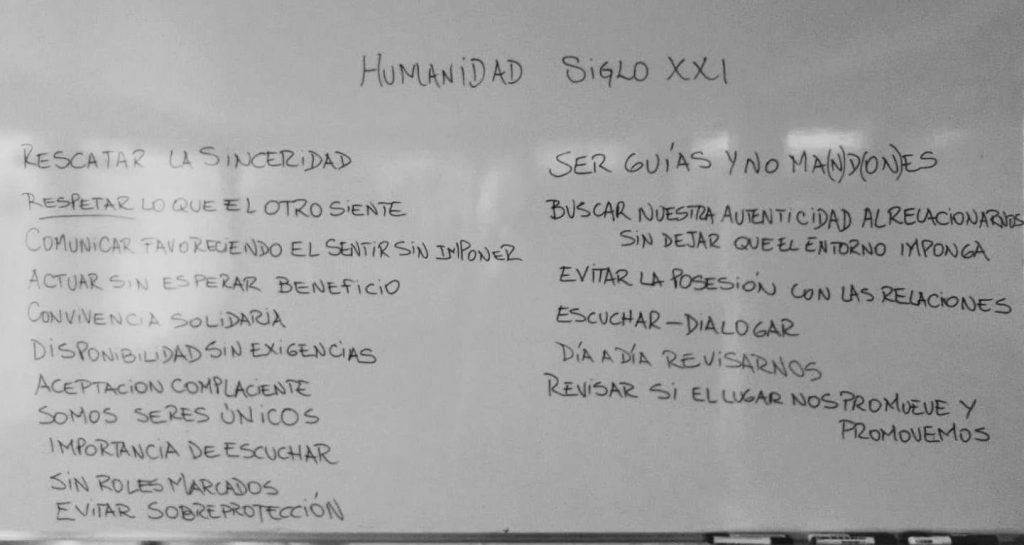 HUMANIDAD SIGLO XXI
RESCATAR LA SINCERIDAD
RESPETAR LO QUE EL OTRO SIENTE
COMUNICAR FAVORECIENDO EL SENTIR SIN IMPONER
ACTUAR SIN ESPERAR BENEFICIO
CONVIVENCIA SOLIDARIA
DISPONIBILIDAD SIN EXIGENCIAS
ACEPTACION COMPLACIENTE
SOMOS SERES ÚNICOS
IMPORTANCIA DE ESCUCHAR
SIN ROLES MARCADOS
EVITAR SOBREPROTECCIÓN
SER GUÍAS Y NO MA(N)D(ON)ES
BUSCAR NUESTRA AUTENTICIDAD AL RELACIONARNOS
SIN DEJAR QUE EL ENTORNO IMPONGA
EVITAR LA POSESIÓN CON LAS RELACIONES
ESCUCHAR-DIALOGAR
DÍA A DÍA REVISARNOS
REVISAR SI EL LUGAR NOS PROMUEVE Y
PROMOVEMOS